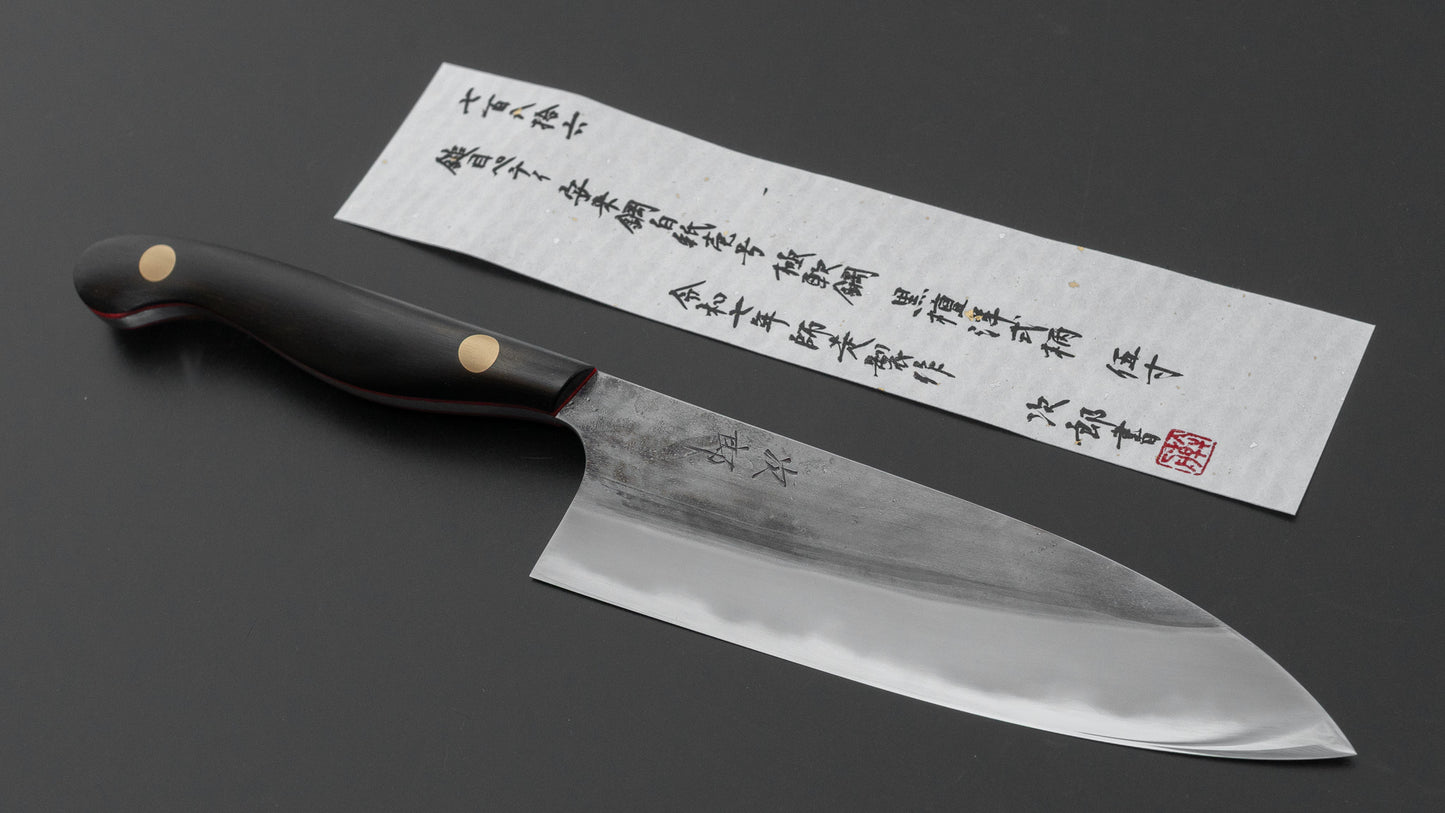 七百八拾六
鎚目ペティ 安来鋼白紙壱号 極軟鋼 黒檀洋式柄 伍寸
令和七年 師走 製作
次郎 書
次